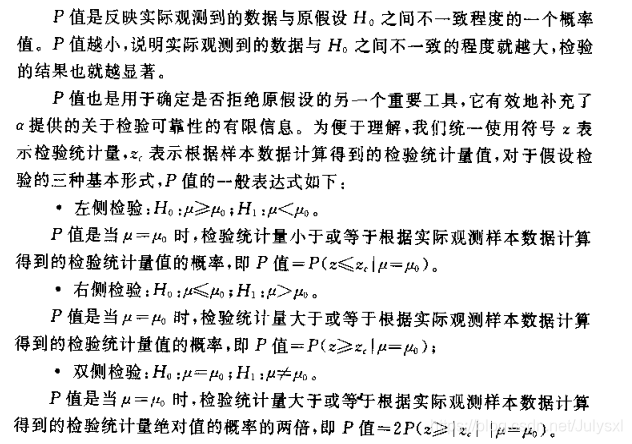 P 值是反映实际观测到的数据与原假设 H₀ 之间不一致程度的一个概率
值。P 值越小,说明实际观测到的数据与 H₀ 之间不一致的程度就越大,检验
的结果也就越显著。
P 值也是用于确定是否拒绝原假设的另一个重要工具,它有效地补充了
α 提供的关于检验可靠性的有限信息。为便于理解,我们统一使用符号 z 表
示检验统计量,z_c 表示根据样本数据计算得到的检验统计量值,对于假设检
验的三种基本形式,P 值的一般表达式如下:
• 左侧检验:H₀:μ≥μ₀;H₁:μ<μ₀。
P 值是当 μ=μ₀ 时,检验统计量小于或等于根据实际观测样本数据计算
得到的检验统计量值的概率,即 P 值=P(z≤z_c|μ=μ₀)。
• 右侧检验:H₀:μ≤μ₀;H₁:μ>μ₀。
P 值是当 μ=μ₀ 时,检验统计量大于或等于根据实际观测样本数据计算
得到的检验统计量值的概率,即 P 值=P(z≥z_c|μ=μ₀);
• 双侧检验:H₀:μ=μ₀;H₁:μ≠μ₀。
P 值是当 μ=μ₀ 时,检验统计量大于或等于根据实际观测样本数据计算
得到的检验统计量绝对值的概率的两倍,即 P 值=2P(z≥|z_c| |μ=μ₀)。